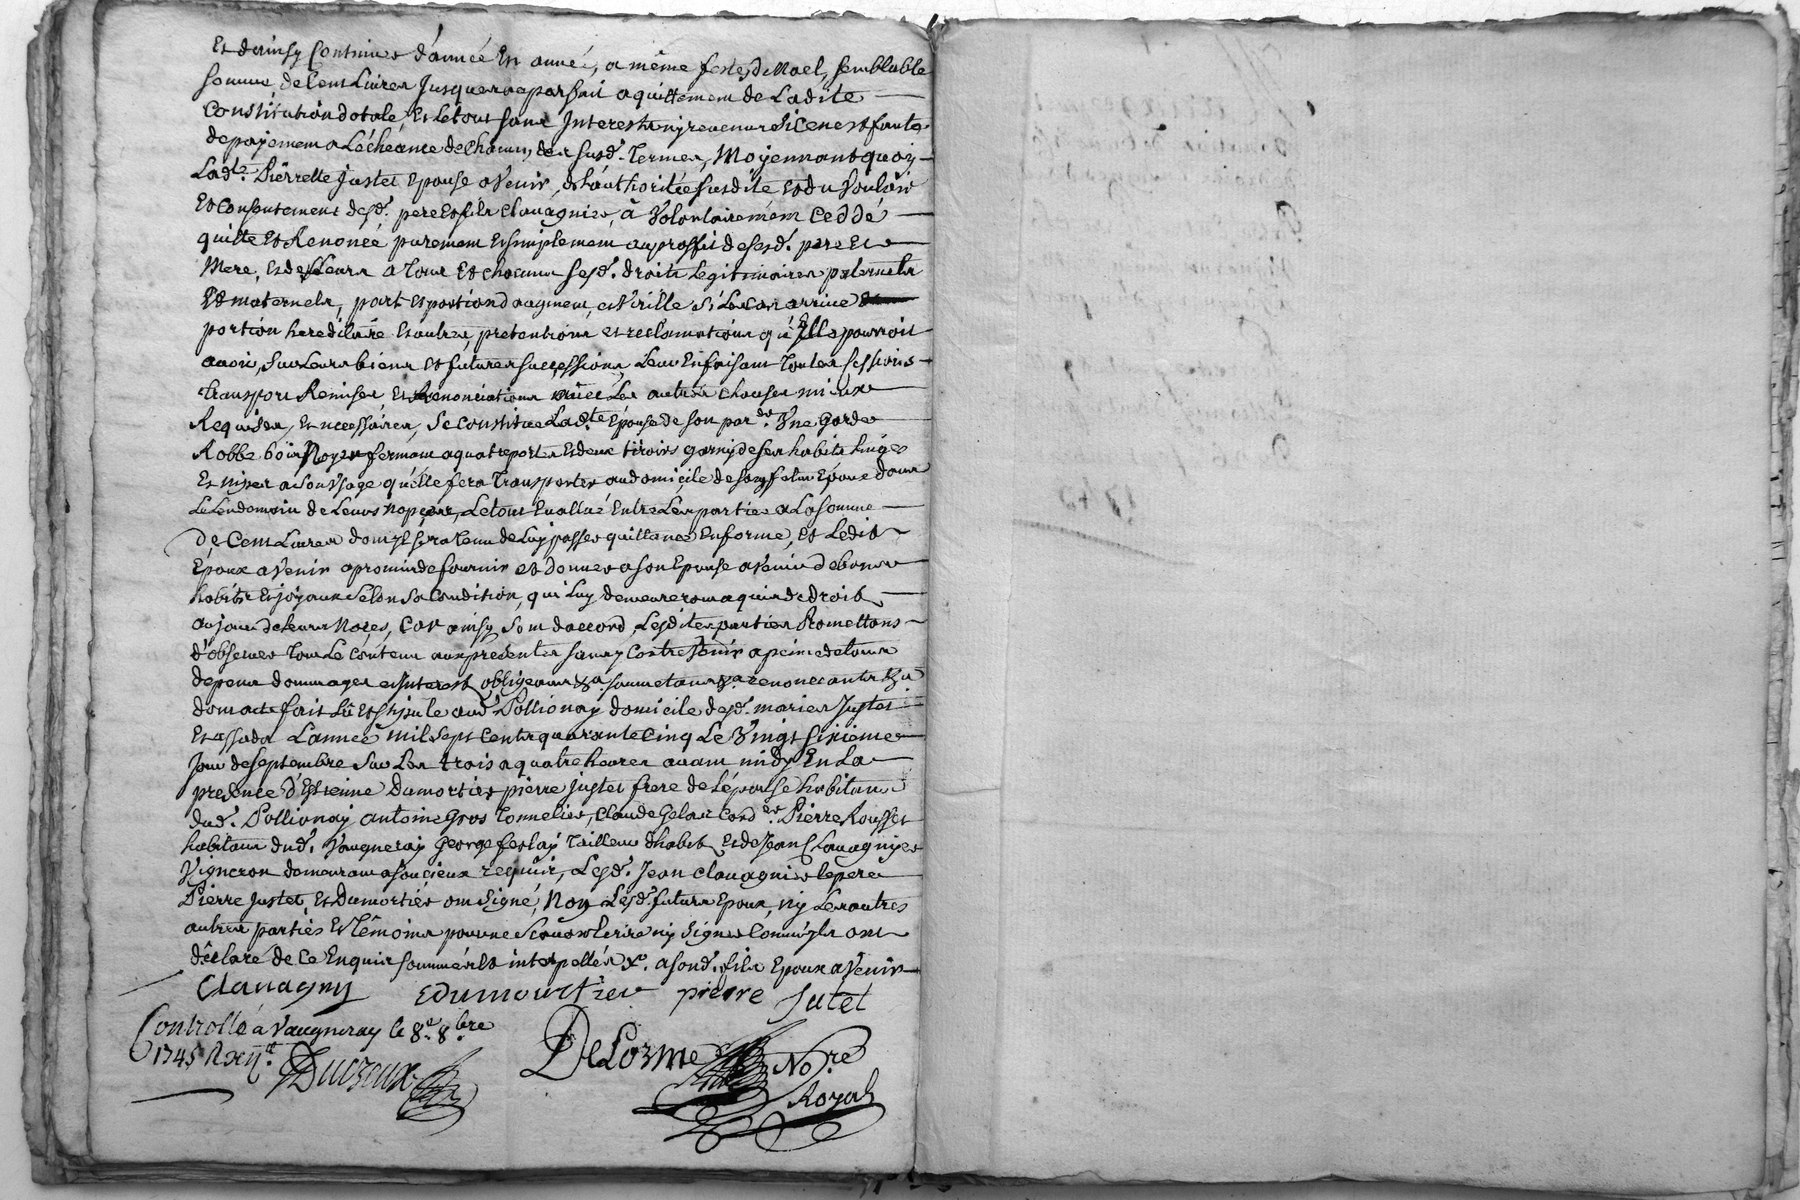 Et d'ainsy Continuer d'année En année, a même feste de Noel, semblable
somme de Cent Livres Jusques a parfait aquittement de Ladite
Constitution dotale, Et Le tout sans Interests ny revenus si ce n'est faute
de payement a L'échéance de Chacun des susd. Termes, Moyennant quoy
Lad.te Pierrette Justet Epouse avenir, de L'authoritée susdite et du vouloir
Et Consentement desd. pere Et fils Clavagnier, à Volontairement Ceddé
quitté Et Renoncé purement Et simplement au proffit de sesd. pere Et
Mere, Et des Leurs a Tous Et chacuns sesd. droits Legitimaires paternels
Et maternels, part Et portion daugment, et Virille si Le cas arrive
portion hereditaire Et autres, pretentions et reclamations qu'Elle pourroit
avoir, sur Leurs biens Et futures successions, Leur En faisant Toutes sessions
transport Remises, Et Renonciations avec Les autres Choses mieux
Requises, Et necessaires, se Constitue Lad.te Epouse de son par.er Une Garde
Robbe bois Noyer fermant a quatre portes Et deux tiroirs garny de ses habits linges
Et nipes a son Usage qu'elle fera Transporter au domicile de son futur Epoux dans
Le Lendemain de Leurs nopces, Le tout Evallué Entre Les parties a La somme
De Cent Livres dont il sera Tenu de Luy passer quittance En forme, Et Ledit
Epoux avenir a promis de fournir et donner a son Epouse avenir de bons
habits Et joyaux selon sa Condition, qui Luy demeureront aquis de droit
au jour de Leurs Noces, Car ainsy sont d'accord, Lesdites parties Promettans
d'observer Tout Le Contenu aux presentes sans y Contrevenir a peine de tous
depens dommages et Interests obligeans &a. soumetans &a. renoncants &a.
dont acte fait Lû Et aud. Pollionay domicile desd. mariés Justet
Et assada L'année Mil sept Cents quarante Cinq Le Vingt sixieme
Jour de septembre sur Les trois a quatre heures avant midy En La
presence d'Estienne Dumortier pierre Justet frere de L'épouse habitans
dud. Pollionay antoine Gros Tonnelier, Claude Gelas Cord.er Pierre Rousset
habitans dud. Vaugneray George feslay Tailleur d'habits Et de Jean Clavagnier
Vigneron demeurant a Soucieux requis, Lesd. Jean Clavagnier le pere
Pierre Justet, Et Dumortier ont signé, Non Lesd. futurs Epoux, ny Les autres
autres parties Et Témoins pour ne sçavoir Ecrire ny signer Comm'ils ont
déclaré de Ce Enquis sommés Et interpellés X. a sond. fils Epoux avenir
Clavagny Edumourtier pierre Jutet
Controllé à Vaugneray le 8.e 8.bre
1745 R xii.
Ducreux
Delorme No.re
Royal
1745